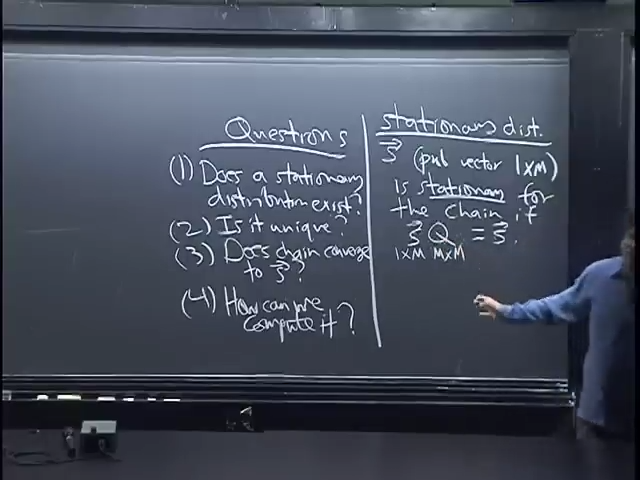 Questions
(1) Does a stationary
distribution exist?
(2) Is it unique?
(3) Does chain converge
to s⃗ ?
(4) How can we
compute it?
stationary dist.
s⃗ (prob vector 1×M)
is stationary for
the chain if
s⃗ Q = s⃗.
1×M M×M